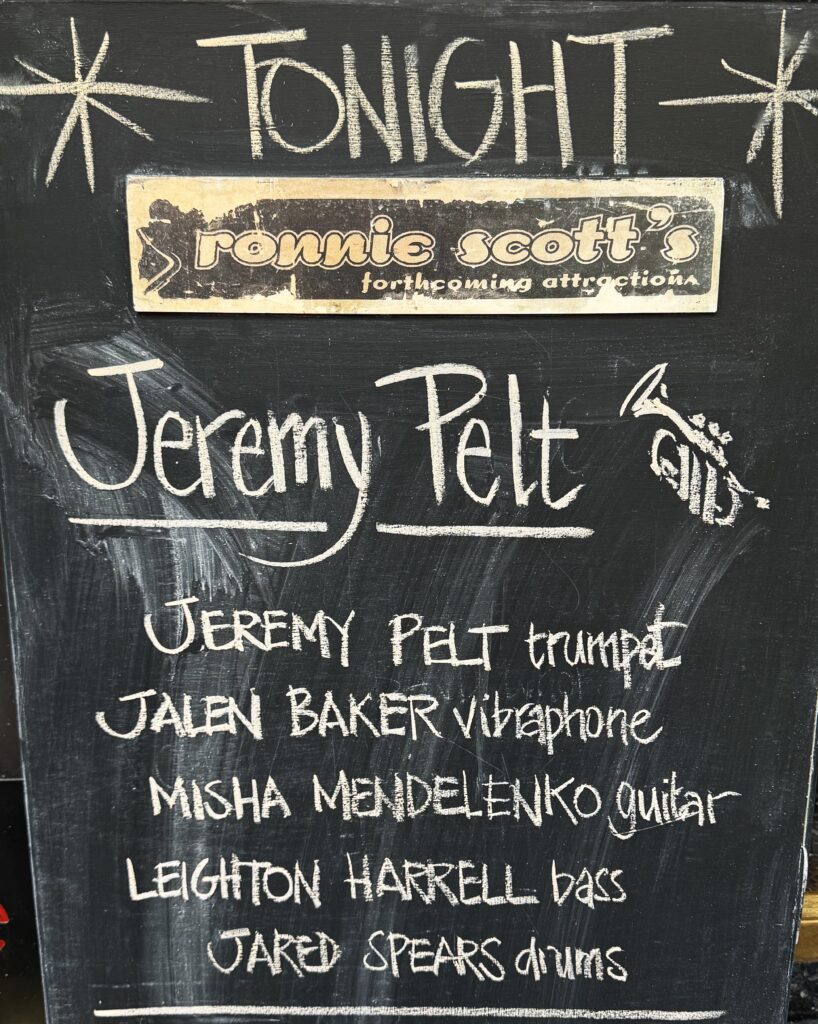 TONIGHT
ronnie scott's
forthcoming attractions
Jeremy Pelt
JEREMY PELT trumpet
JALEN BAKER vibraphone
MISHA MENDELENKO guitar
LEIGHTON HARRELL bass
JARED SPEARS drums